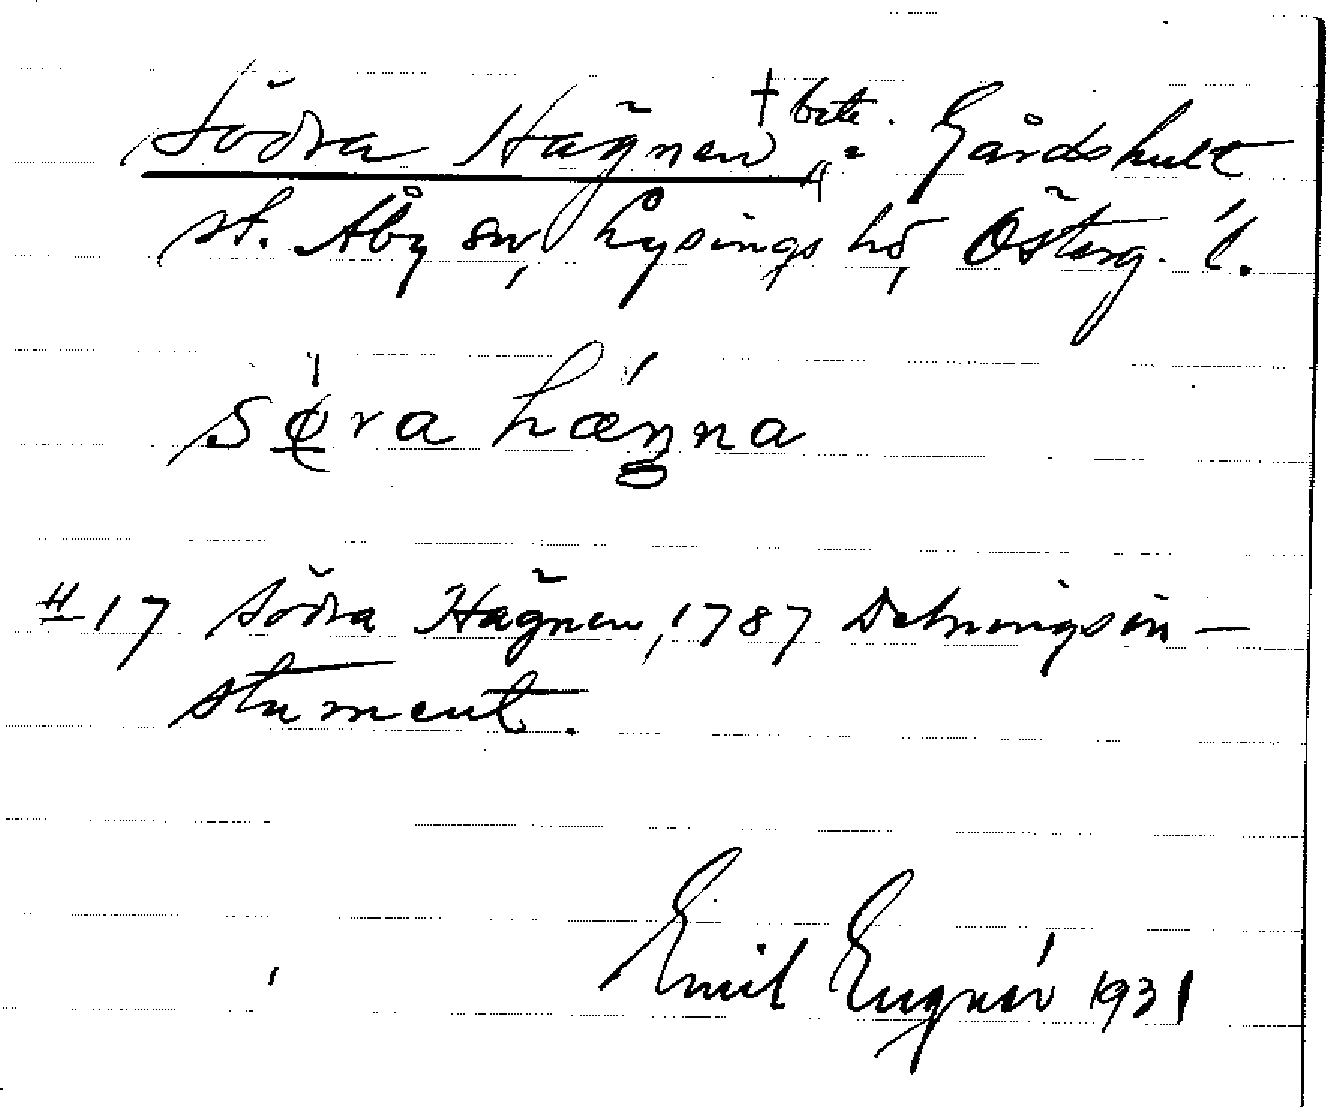 Södra Hägnen † bete. i Gårdshult
st. Åby sn, Lysings hd, Österg. l.
søra hæŋna
17 Södra Hägnen, 1787 Delningsin-
strument.
Emil Engnér 1931